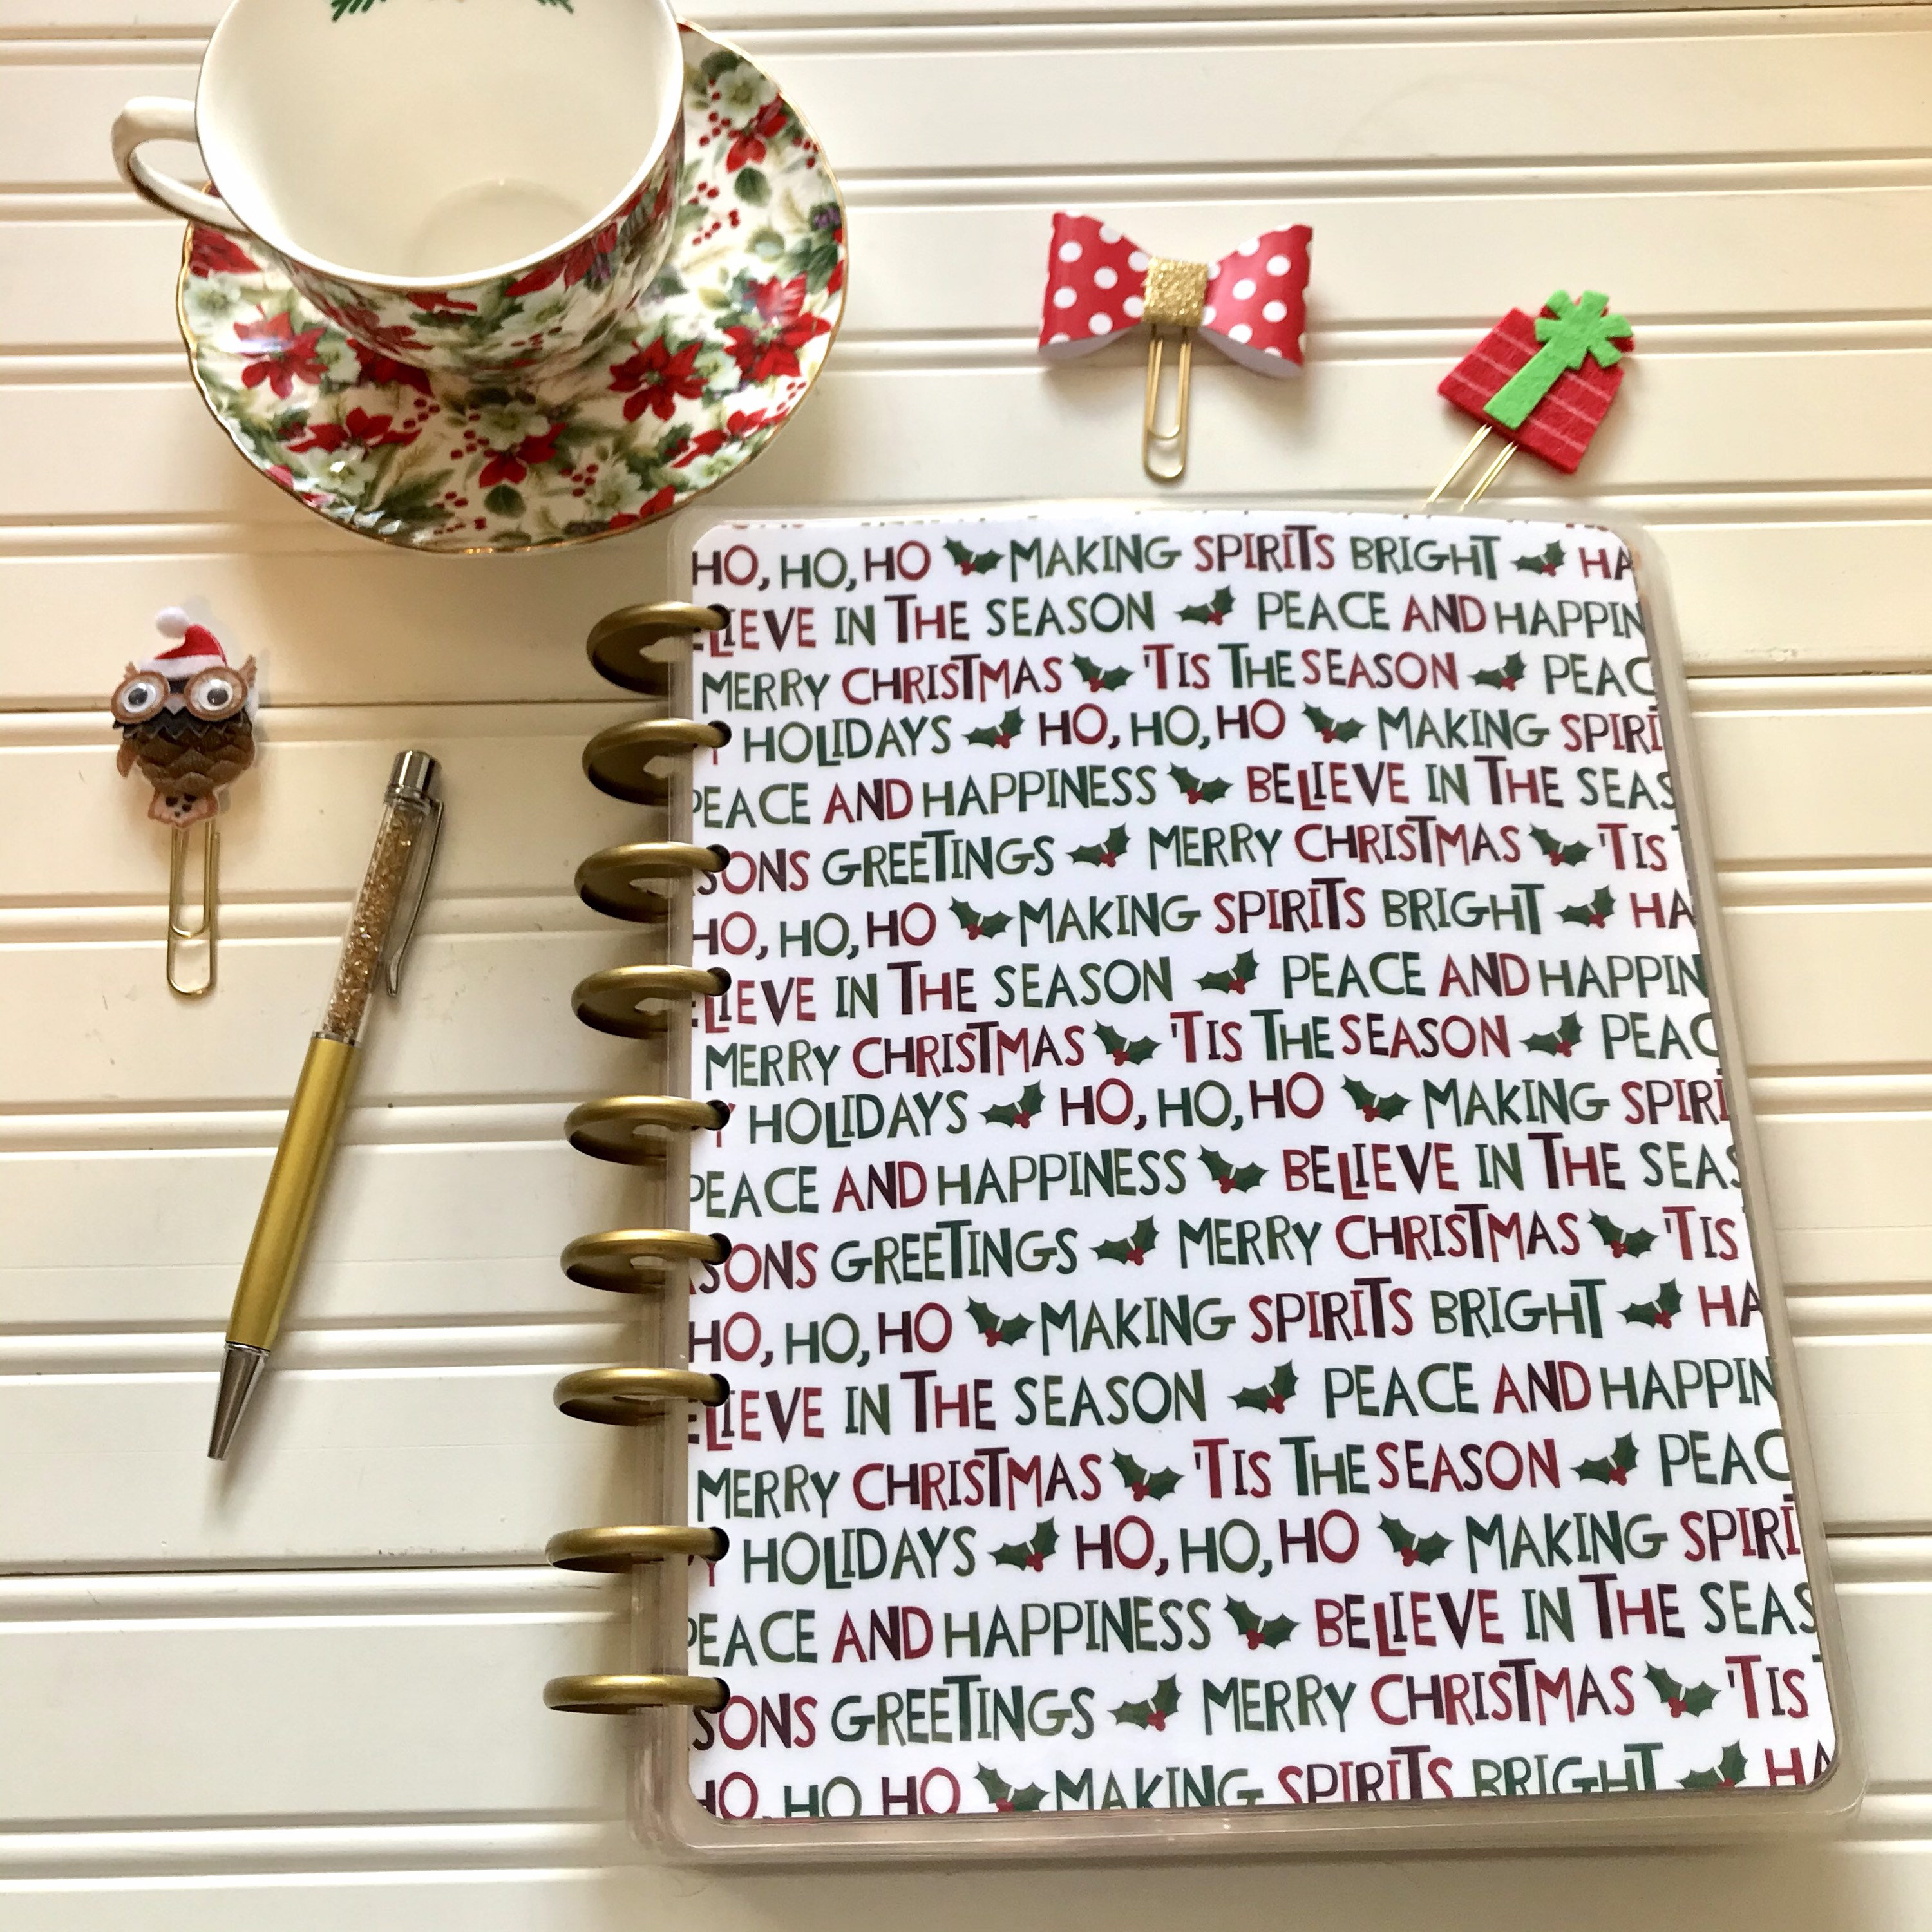 HO, HO, HO MAKING SPIRITS BRIGHT HA
LIEVE IN THE SEASON PEACE AND HAPPIN
MERRY CHRISTMAS 'TIS THE SEASON PEAC
Y HOLIDAYS HO, HO, HO MAKING SPIRI
PEACE AND HAPPINESS BELIEVE IN THE SEAS
SONS GREETINGS MERRY CHRISTMAS 'TIS
HO, HO, HO MAKING SPIRITS BRIGHT HA
ELIEVE IN THE SEASON PEACE AND HAPPIN
MERRY CHRISTMAS 'TIS THE SEASON PEAC
Y HOLIDAYS HO, HO, HO MAKING SPIRI
PEACE AND HAPPINESS BELIEVE IN THE SEAS
SONS GREETINGS MERRY CHRISTMAS 'TIS
HO, HO, HO MAKING SPIRITS BRIGHT HA
ELIEVE IN THE SEASON PEACE AND HAPPIN
MERRY CHRISTMAS 'TIS THE SEASON PEAC
Y HOLIDAYS HO, HO, HO MAKING SPIRI
PEACE AND HAPPINESS BELIEVE IN THE SEAS
SONS GREETINGS MERRY CHRISTMAS 'TIS
HO, HO, HO MAKING SPIRITS BRIGHT HA